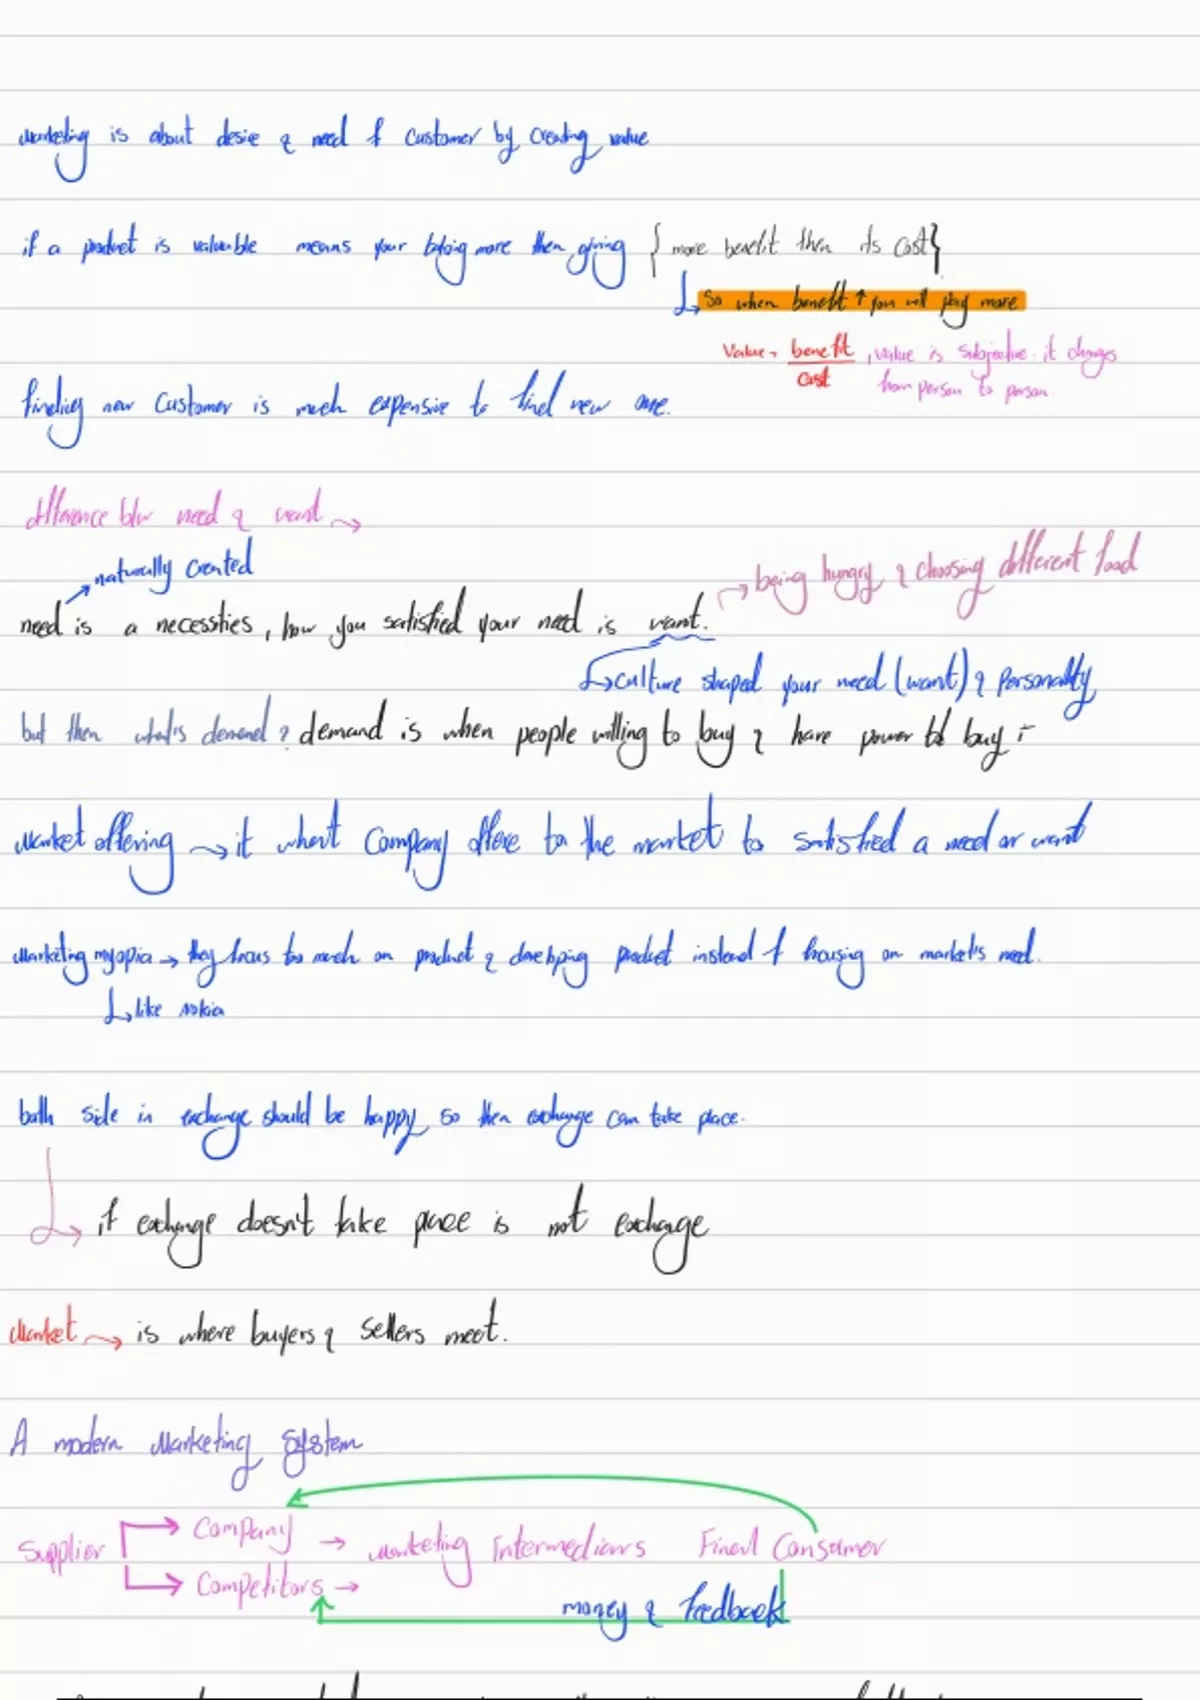 Marketing is about desire & need of customer by creating value
if a product is valuable means your buying more then giving { more benefit then its cost }
so when benefit ↑ you will pay more
Value = benefit / cost , value is subjective. it changes from person to person.
finding new customer is much expensive to find new one.
difference btw need & want →
naturally created
being hungry & choosing different food
need is a necessties, how you satisfied your need is want.
culture shaped your need (want) & Personality
but then what's demand? demand is when people willing to buy & have power to buy
Market offering → it what company offere to the market to satisfied a need or want
Marketing myopia → they focus too much on product & developing product instead of focusing on market's need.
like nokia
both side in exchange should be happy so then exchange can take place.
if exchange doesn't take place is not exchange
Market → is where buyers & sellers meet.
A modern Marketing System
Supplier → Company → Marketing Intermediaris Final Consumer
→ Competitors →
money & feedback